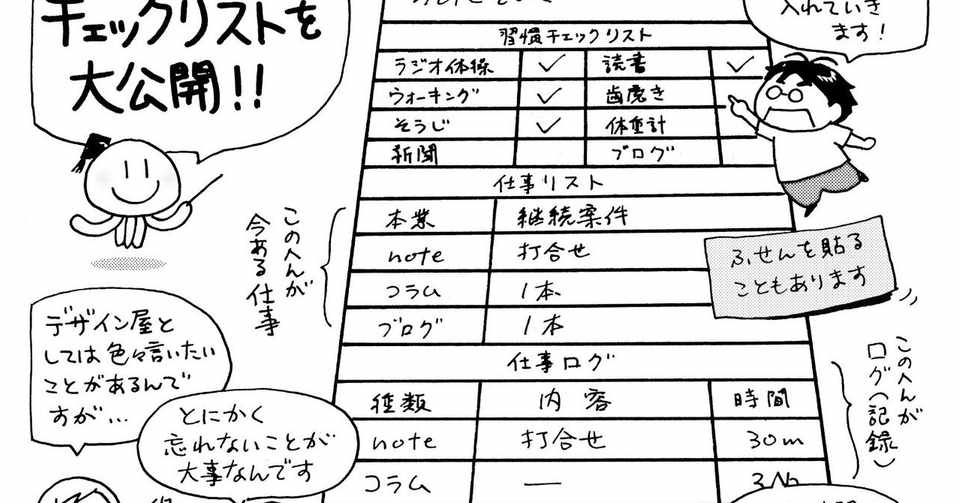 チェックリストを
大公開!!
入れていき
ます!
習慣チェックリスト
ラジオ体操 ✓ 読書 ✓
ウォーキング ✓ 歯磨き
そうじ ✓ 体重計
新聞 ブログ
仕事リスト
本業 継続案件
note 打合せ
コラム 1本
ブログ 1本
このへんが
今ある仕事
ふせんを貼る
こともあります
仕事ログ
種類 内容 時間
note 打合せ 30m
コラム ー
このへんが
ログ(記録)
デザイン屋と
しては色々言いたい
ことがあるんで
すが…
とにかく
忘れないことが
大事なんです